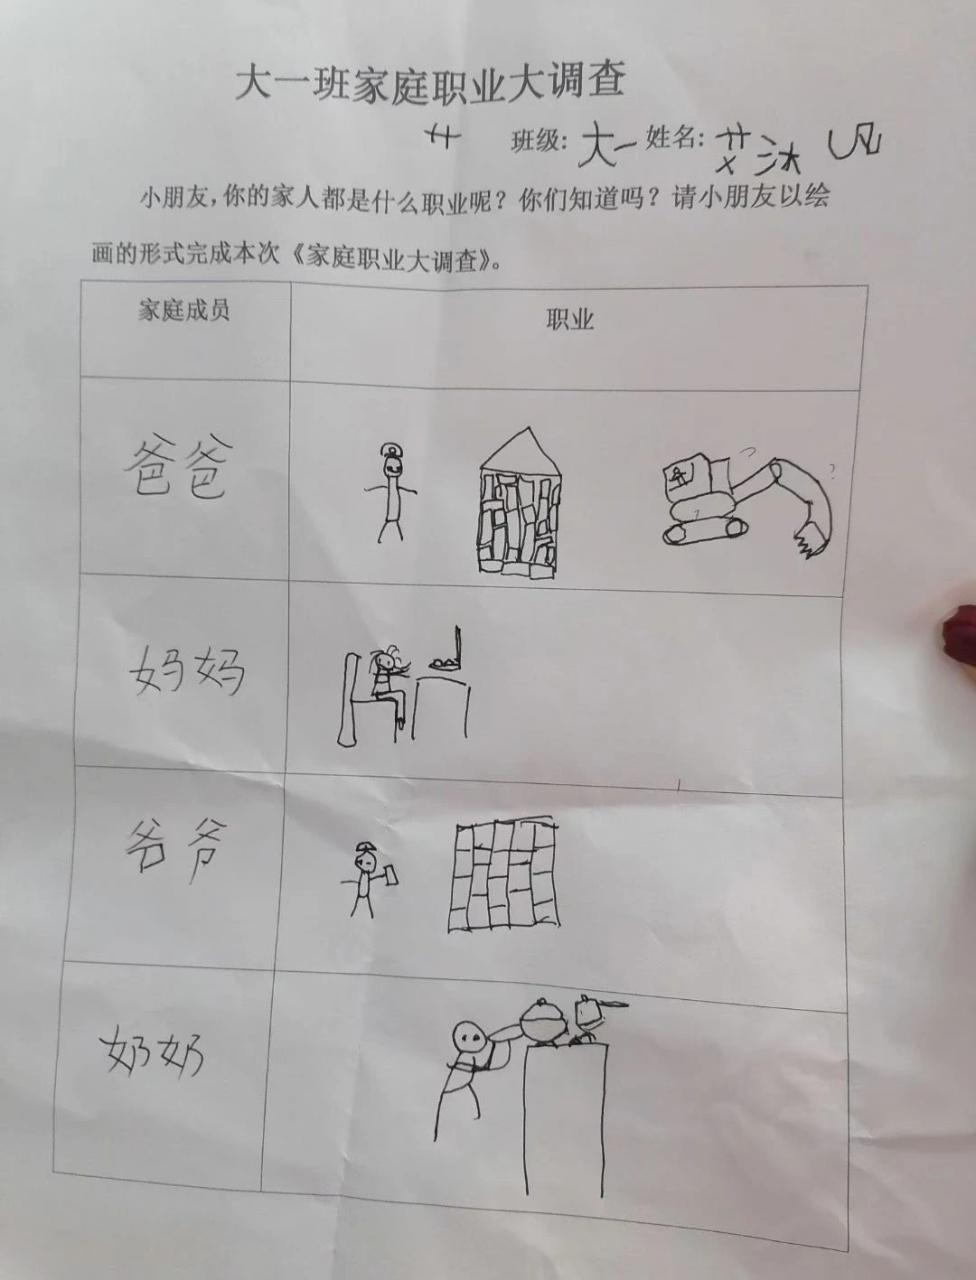 大一班家庭职业大调查
班级: 大一 姓名: 艾沐
小朋友,你的家人都是什么职业呢？你们知道吗？请小朋友以绘
画的形式完成本次《家庭职业大调查》。
家庭成员 职业
爸爸
妈妈
爷爷
奶奶